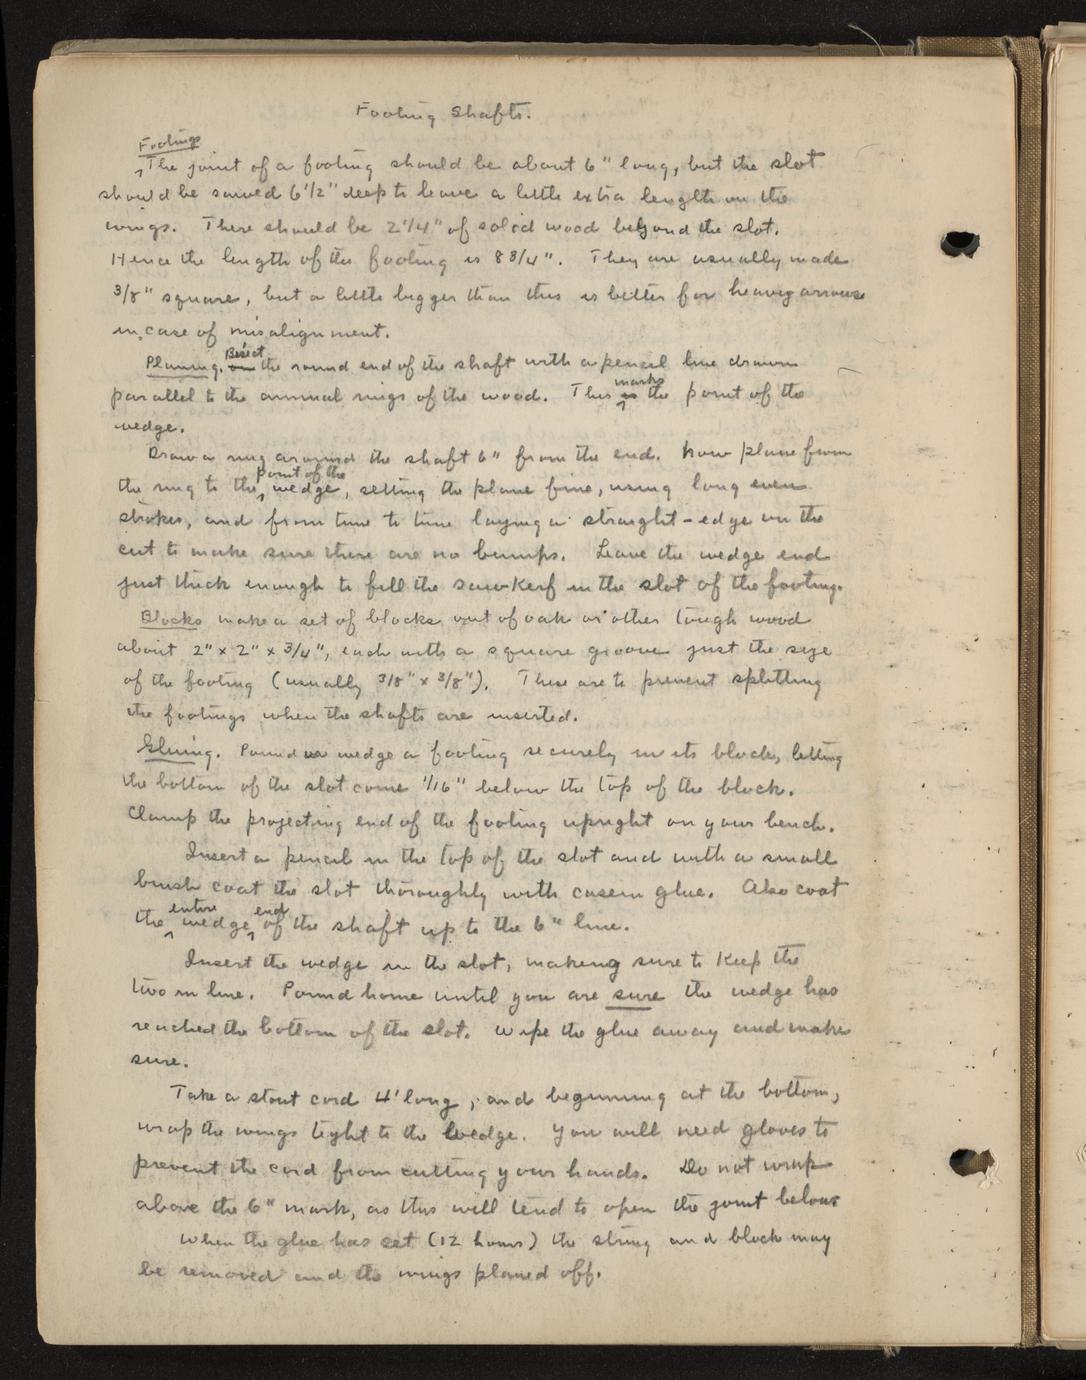 Footing Shafts.
Footings
The joint of a footing should be about 6" long, but the slot
should be sawed 6 1/2" deep to leave a little extra length on the
wings. There should be 2 1/4" of solid wood beyond the slot.
Hence the length of the footing is 8 3/4". They are usually made
3/8" square, but a little bigger than this is better for heavy arrows
in case of misalignment.
Planing. Bisect the round end of the shaft with a pencil line drawn
parallel to the annual rings of the wood. This marks the point of the
wedge.
Draw a ring around the shaft 6" from the end. Now plane from
the ring to the point of the wedge, setting the plane fine, using long even
strokes, and from time to time laying a straight-edge on the
cut to make sure there are no bumps. Leave the wedge end
just thick enough to fill the saw kerf in the slot of the footing.
Blocks make a set of blocks out of oak or other tough wood
about 2" x 2" x 3/4", each with a square groove just the size
of the footing (usually 3/8" x 3/8"). These are to prevent splitting
the footings when the shafts are inserted.
Gluing. Pound or wedge a footing securely in its block, letting
the bottom of the slot come 1/16" below the top of the block.
Clamp the projecting end of the footing upright on your bench.
Insert a pencil in the top of the slot and with a small
brush coat the slot thoroughly with casein glue. Also coat
the entire wedge end of the shaft up to the 6" line.
Insert the wedge in the slot, making sure to keep the
two in line. Pound home until you are sure the wedge has
reached the bottom of the slot. Wipe the glue away and make
sure.
Take a stout cord 4' long, and beginning at the bottom,
wrap the wings tight to the wedge. You will need gloves to
prevent the cord from cutting your hands. Do not wrap
above the 6" mark, as this will tend to open the joint below
When the glue has set (12 hours) the string and block may
be removed and the wings planed off.